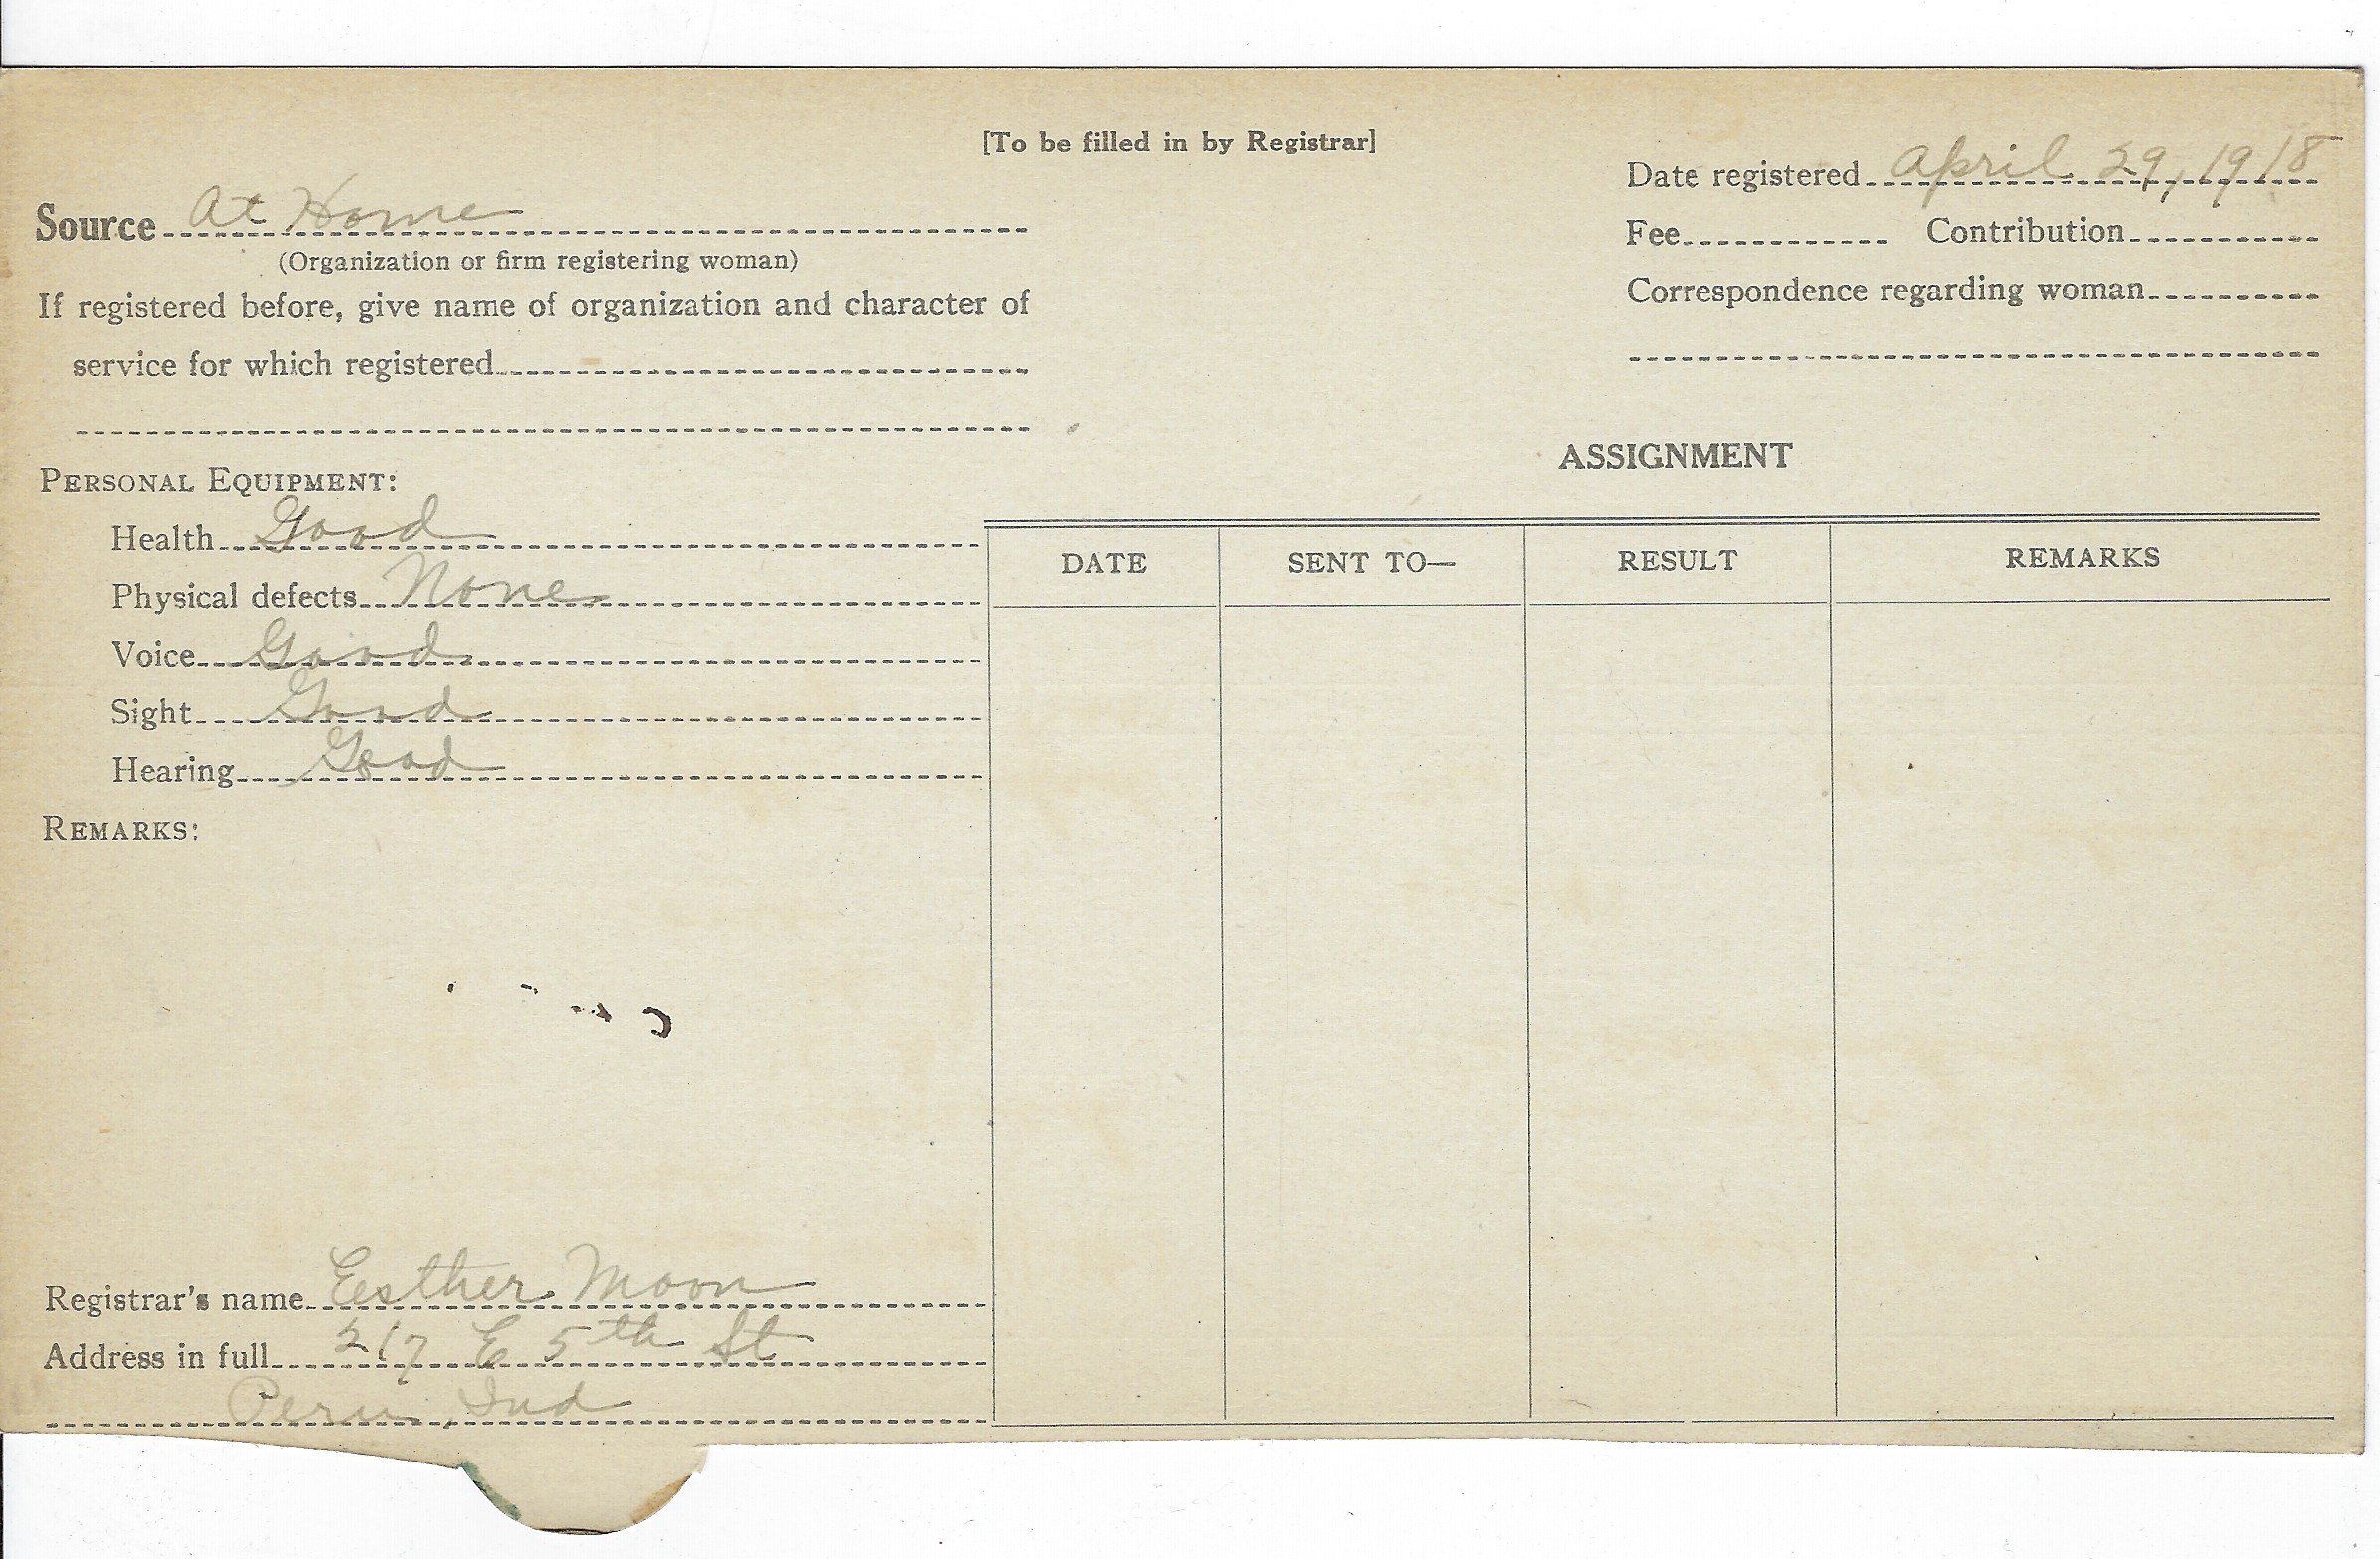 [To be filled in by Registrar]
Date registered April 29, 1918
Source At Home
(Organization or firm registering woman)
Fee Contribution
If registered before, give name of organization and character of
service for which registered
Correspondence regarding woman
PERSONAL EQUIPMENT:
Health Good
Physical defects None
Voice Good
Sight Good
Hearing Good
REMARKS:
Registrar's name Esther Moon
Address in full 217 E 5th St
Peru, Ind
ASSIGNMENT
DATE SENT TO— RESULT REMARKS